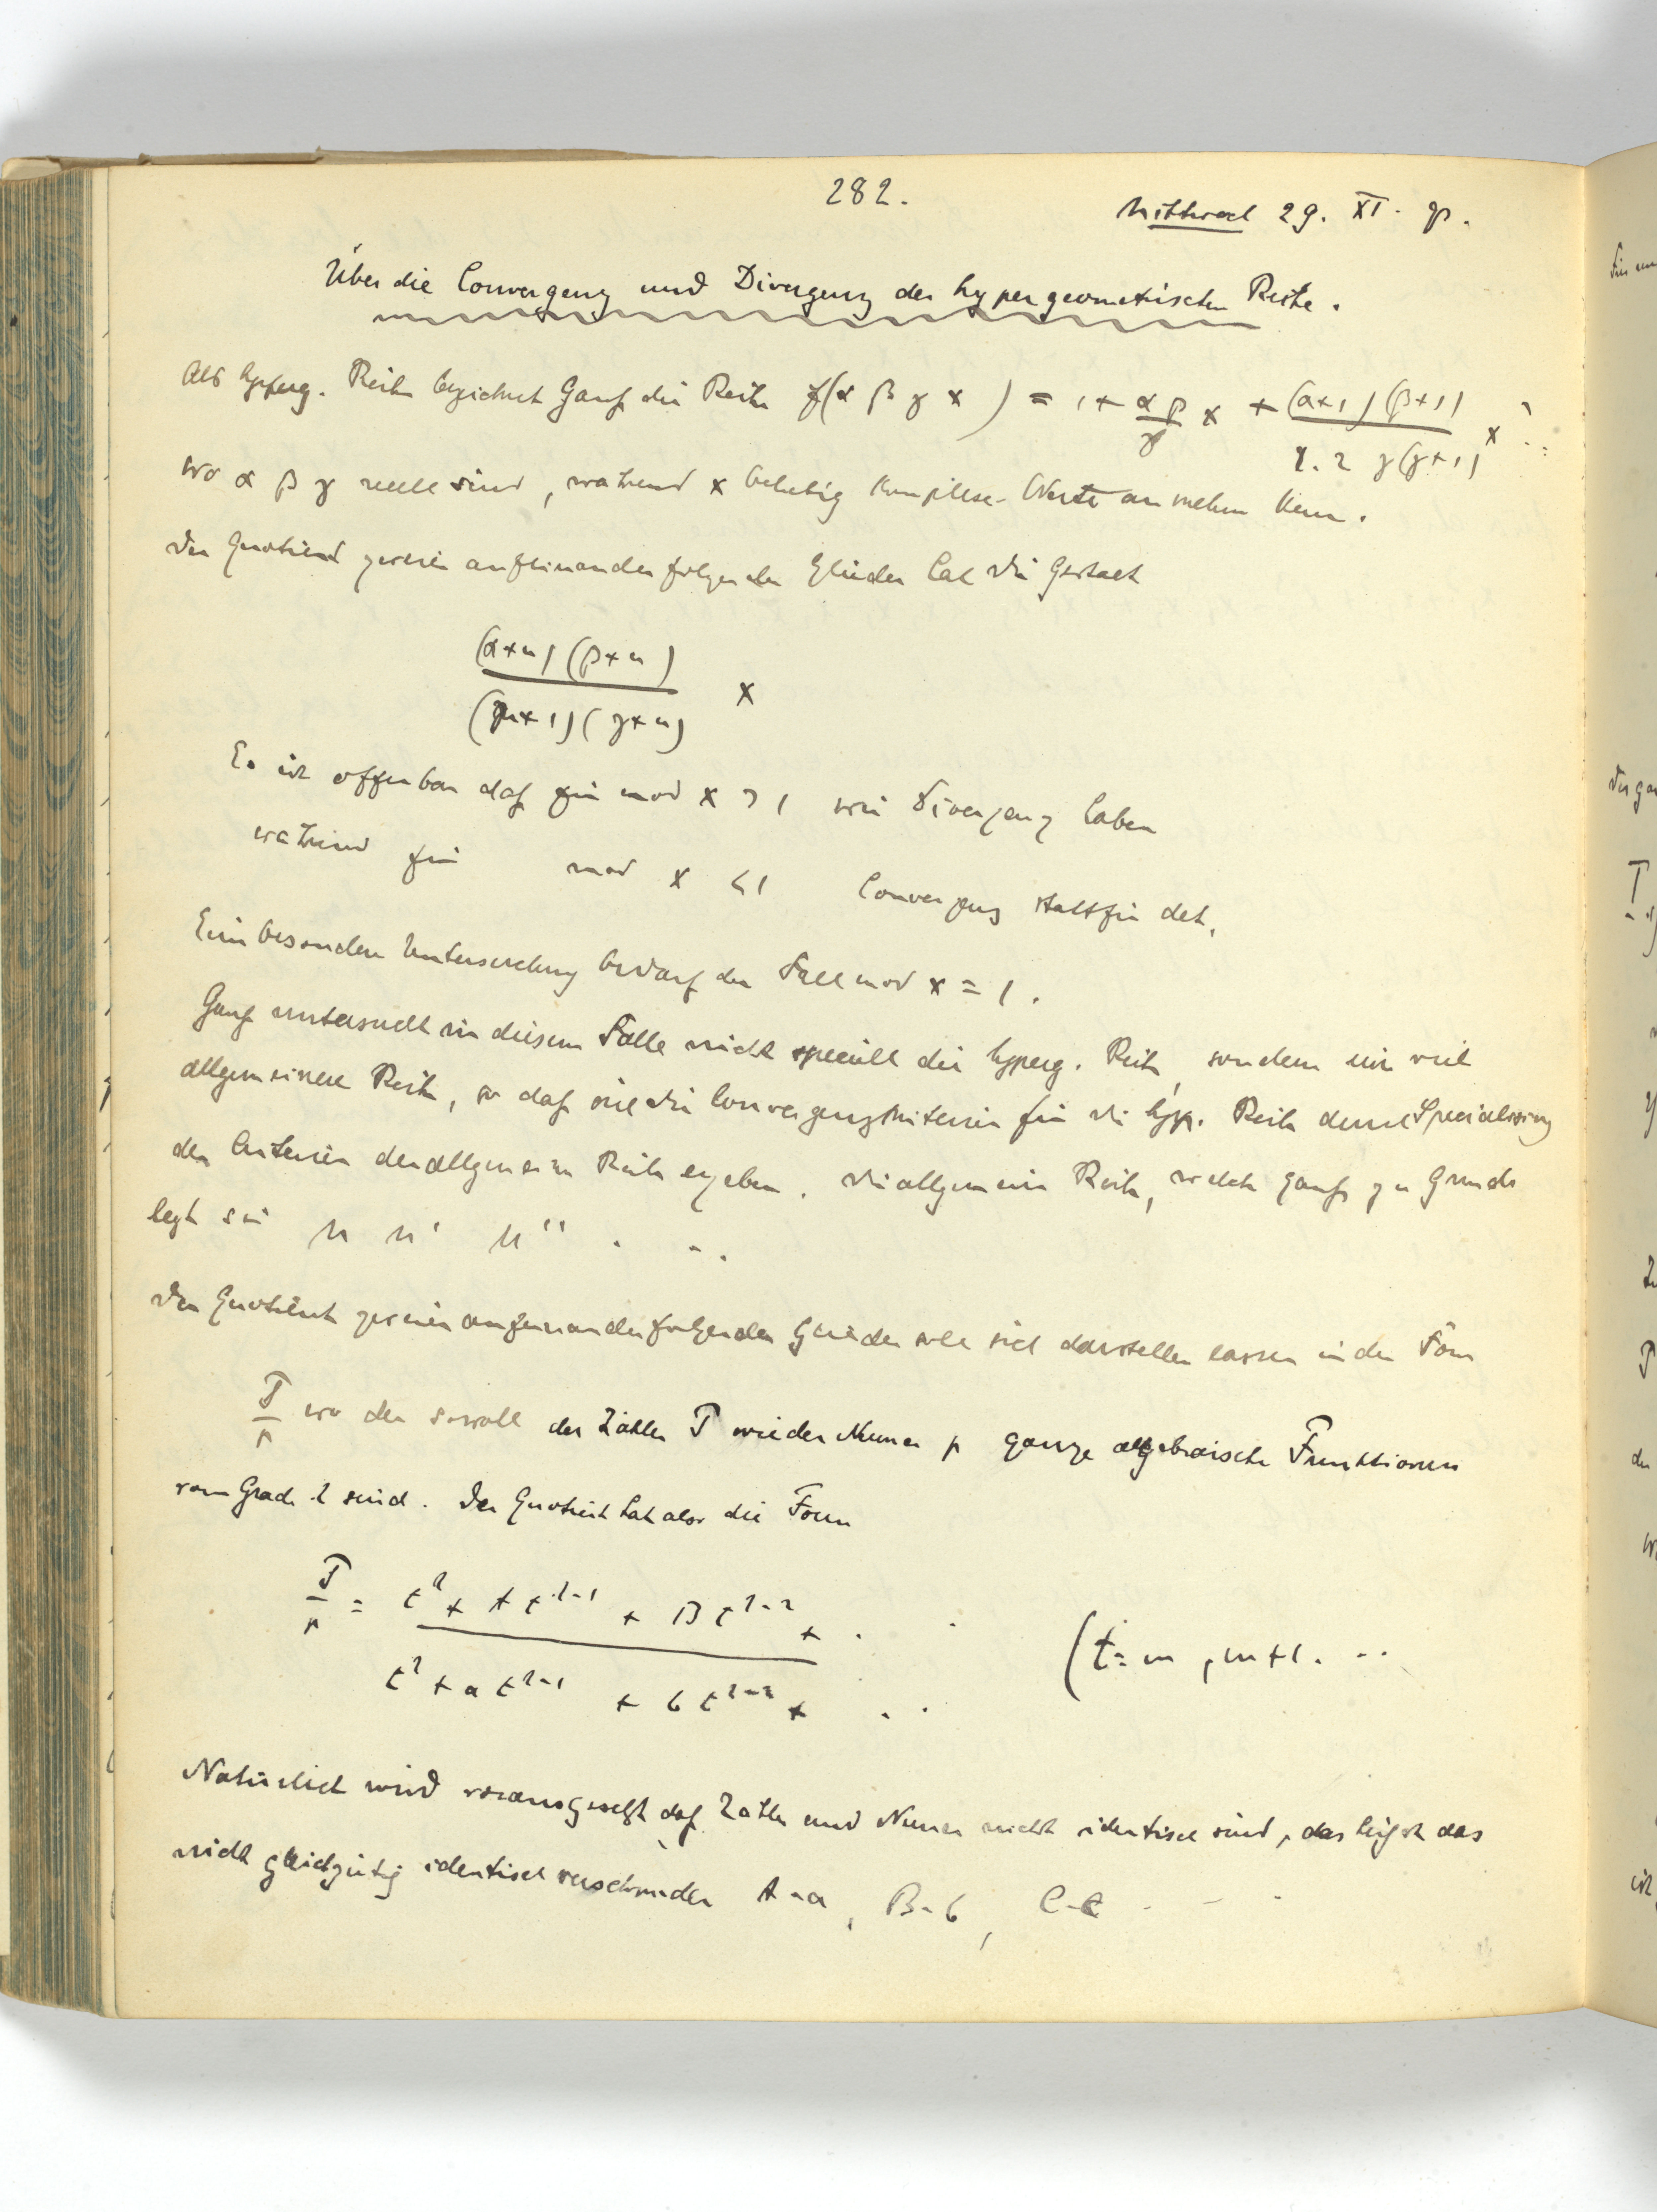 282.
Mittwoch 29. XI. 93.
Über die Convergenz und Divergenz der hypergeometrischen Reihe.
Als hyperg. Reihe bezeichnet Gauß die Reihe f(α β γ x) = 1 + αβ/γ x + (α+1)(β+1)/1.2 γ(γ+1) x² ...
wo α β γ reell sind, während x beliebig komplexe Werte annehmen kann.
Der Quotient zweier aufeinanderfolgender Glieder hat die Gestalt
(α+n)(β+n)/(n+1)(γ+n) x
Es ist offenbar daß für mod x > 1 wir Divergenz haben
während für mod x < 1 Convergenz stattfindet.
Eine besondere Untersuchung bedarf der Fall mod x = 1.
Gauß untersucht in diesem Falle nicht speciell die hyperg. Reihe, sondern eine viel
allgemeinere Reihe, so daß sich die Convergenzkriterien für die hyp. Reihe durch Specialisirung
der Criterien der allgemeinen Reihe ergeben. Die allgemeine Reihe, welche Gauß zu Grunde
legt sei M M' M'' . . .
Der Quotient zweier aufeinanderfolgender Glieder soll sich darstellen lassen in der Form
P/p wo der sowohl der Zähler P wie der Nenner p ganze algebraische Funktionen
vom Grade λ sind. Der Quotient hat also die Form
P/p = t^λ + A t^λ-1 + B t^λ-2 + . . / t^λ + a t^λ-1 + b t^λ-2 + . . (t = m, m+1. ..
Natürlich wird vorausgesetzt daß Zähler und Nenner nicht identisch sind, das heißt das
nicht gleichzeitig identisch verschwinden A-a, B-b, C-c - - -